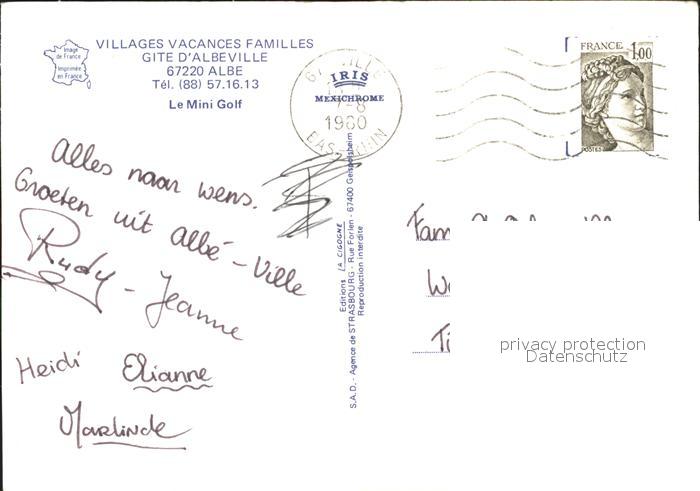 VILLAGES VACANCES FAMILLES
GITE D'ALBEVILLE
67220 ALBE
Tél. (88) 57.16.13
Le Mini Golf
Image
de France
Imprimée
en France
IRIS
MEXICHROME
7-8
1980
BAS-RHIN
FRANCE 1,00
POSTES
Alles naar wens.
Groeten uit Albé-Ville
Rudy - Jeanne
Heidi Elianne
Marlinde
Editions LA CIGOGNE
S.A.D. - Agence de STRASBOURG - Rue Forlen - 67400 Geispolsheim
Reproduction interdite
Fam
privacy protection
Datenschutz